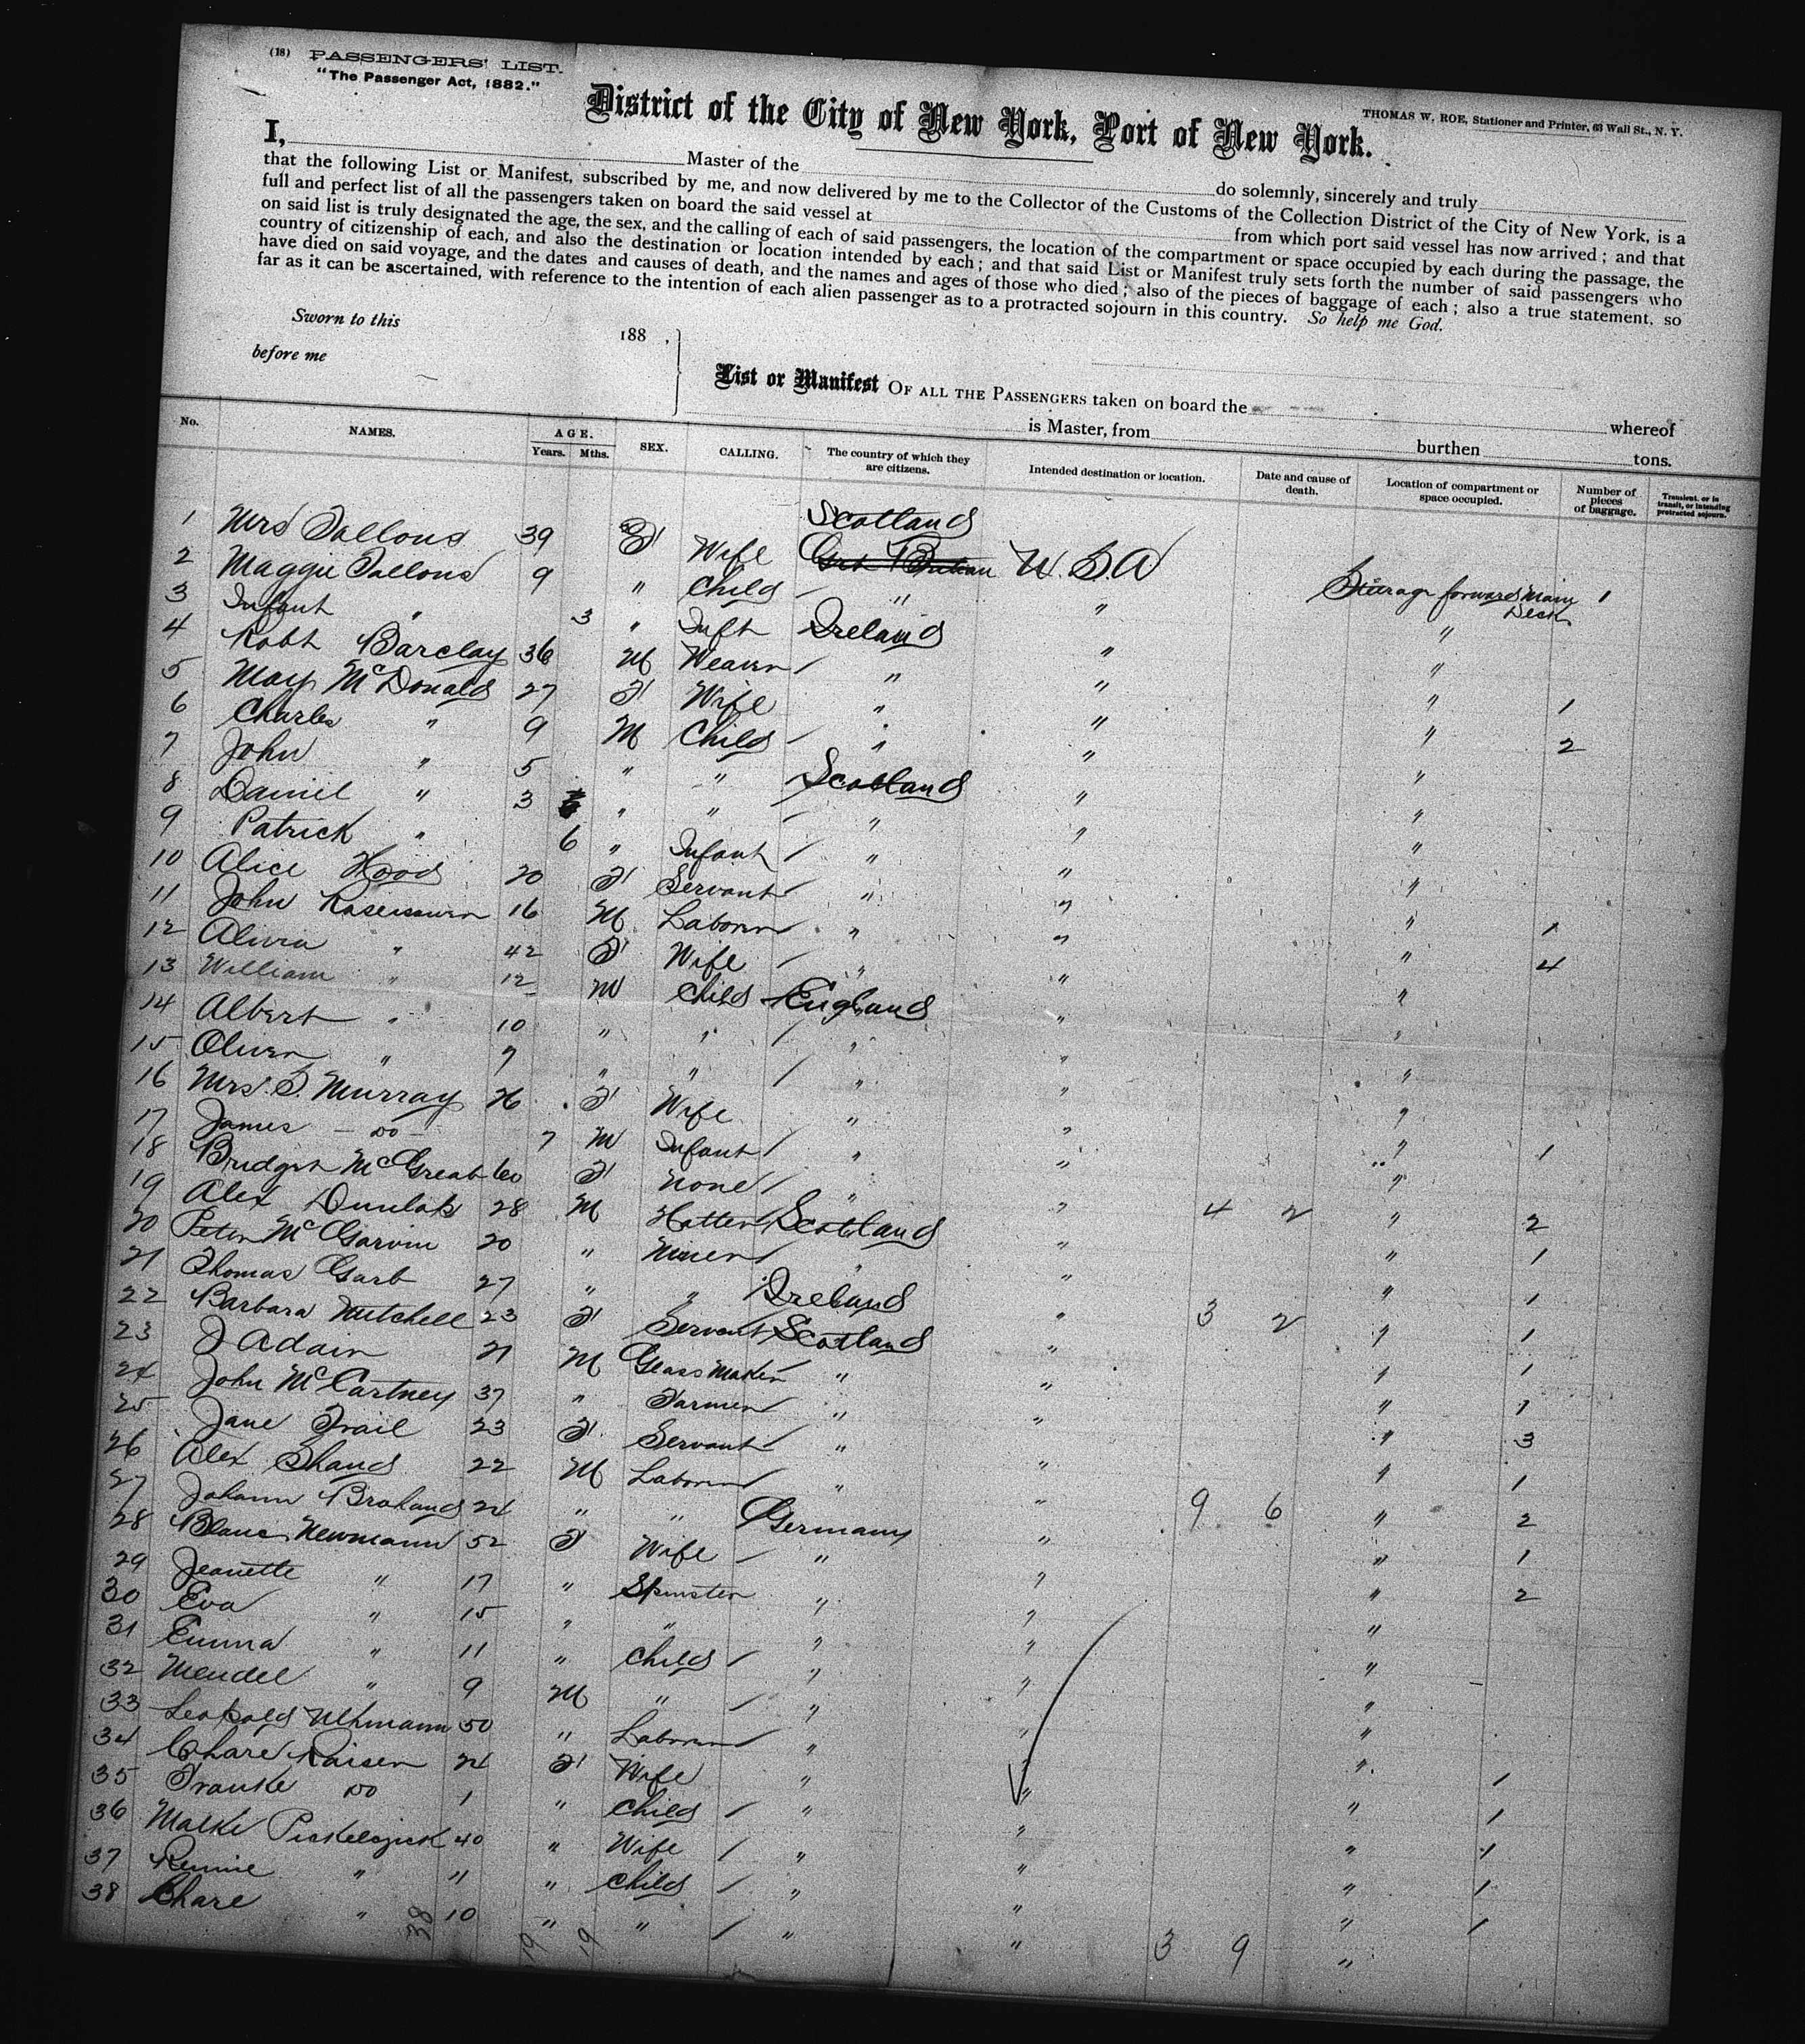 (18) PASSENGERS' LIST.
"The Passenger Act, 1882."
THOMAS W. ROE, Stationer and Printer, 63 Wall St., N. Y.
District of the City of New York, Port of New York.
I, Master of the do solemnly, sincerely and truly
that the following List or Manifest, subscribed by me, and now delivered by me to the Collector of the Customs of the Collection District of the City of New York, is a
full and perfect list of all the passengers taken on board the said vessel at from which port said vessel has now arrived; and that
on said list is truly designated the age, the sex, and the calling of each of said passengers, the location of the compartment or space occupied by each during the passage, the
country of citizenship of each, and also the destination or location intended by each; and that said List or Manifest truly sets forth the number of said passengers who
have died on said voyage, and the dates and causes of death, and the names and ages of those who died; also of the pieces of baggage of each; also a true statement, so
far as it can be ascertained, with reference to the intention of each alien passenger as to a protracted sojourn in this country. So help me God.
Sworn to this 188 ,
before me
List or Manifest OF ALL THE PASSENGERS taken on board the whereof
is Master, from burthen tons.
No. NAMES. AGE. Years. Mths. SEX. CALLING. The country of which they are citizens. Intended destination or location. Date and cause of death. Location of compartment or space occupied. Number of pieces of baggage. Transient, or in transit, or intending protracted sojourn.
1 Mrs Fallons 39 F Wife Scotland Grt Britain U.S.A Steerage forward Main Deck 1
2 Maggie Fallons 9 " Child " " "
3 Infant " 3 " Inft Ireland " "
4 Robt Barclay 36 M Weaver " " " 1
5 Mary McDonald 27 F Wife " " " 2
6 Charles " 9 M Child " " "
7 John " 5 " " Scotland " "
8 Daniel " 3 " " " " "
9 Patrick " 6 " Infant " " "
10 Alice Hood 20 F Servant " " " 1
11 John 16 M Laborer " " " 4
12 " 42 F Wife " " "
13 William " 12 M Child England " "
14 Albert " 10 " " " " "
15 Oliver " 7 " " " " "
16 Mrs. S. Murray 26 F Wife " " " 1
17 James - Do - 7 M Infant " " "
18 Bridget McGreat 60 F None " " " 2
19 Alex Dunlop 28 M Hatter Scotland " 4 2 " 1
20 Peter McGarvin 20 " Miner " " " 1
21 Thomas Garb 27 " " Ireland " " 1
22 Barbara Mitchell 23 F Servant Scotland " 3 2 " 1
23 J Adair 21 M Glass Maker " " " 1
24 John McCartney 37 " Farmer " " " 3
25 Jane Trail 23 F Servant " " " 1
26 Alex Shand 22 M Laborer " " " 2
27 Johann 24 " " Germany " 9 6 " 1
28 Newmann 52 F Wife " " " 2
29 Jeanette " 17 " Spinster " " "
30 Eva " 15 " " " " "
31 Emma " 11 " Child " " "
32 Mendel " 9 M " " " "
33 Leopold Uhmann 50 " Laborer " " " 1
34 Chare Kaiser 24 F Wife " " " 1
35 Franke Do 1 " Child " " " 1
36 Malke 40 " Wife " " " 1
37 Rennie " 11 " Child " " " 1
38 Chare " 10 " " " " 3 9 "
38 19 19